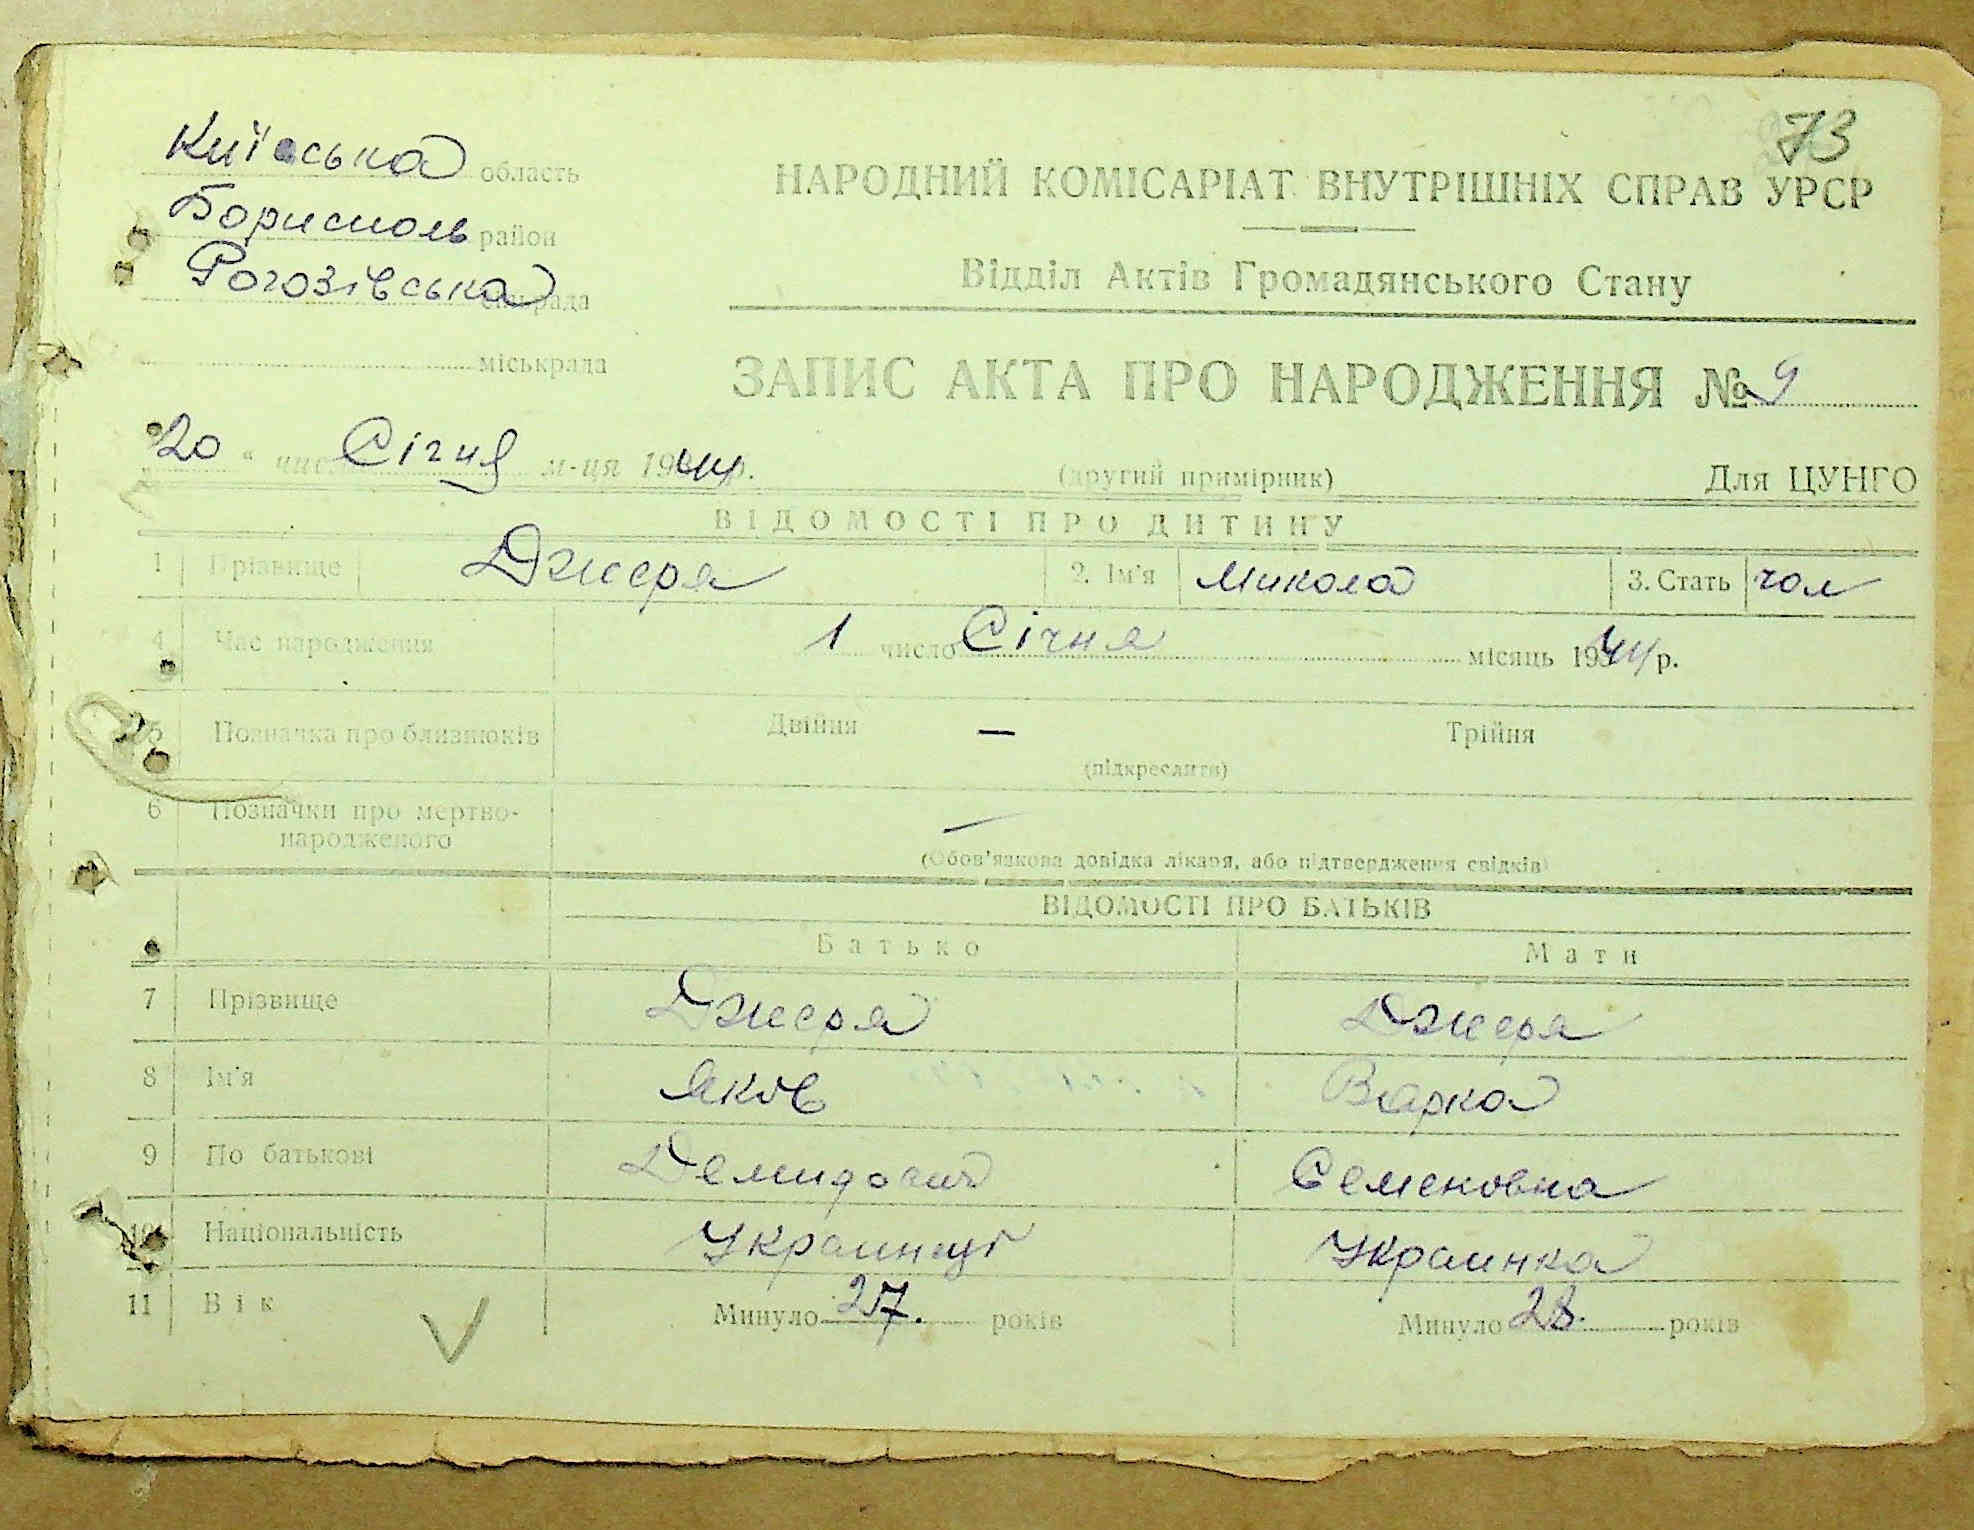 73
Київська область
Бориспіль район
Рогозівська сільрада
міськрада
НАРОДНИЙ КОМІСАРІАТ ВНУТРІШНІХ СПРАВ УРСР
Відділ Актів Громадянського Стану
ЗАПИС АКТА ПРО НАРОДЖЕННЯ № 9
"20" число Січня м-ця 1944 р. (другий примірник) Для ЦУНГО
ВІДОМОСТІ ПРО ДИТИНУ
1 Прізвище Джеря 2. Ім'я Микола 3. Стать чол
4 Час народження 1 число Січня місяць 1944 р.
5 Позначка про близнюків Двійня — Трійня
(підкреслити)
6 Позначки про мертво-
народженого —
(Обов'язкова довідка лікаря, або підтвердження свідків)
ВІДОМОСТІ ПРО БАТЬКІВ
Батько Мати
7 Прізвище Джеря Джеря
8 Ім'я Яків Варка
9 По батькові Демидович Семеновна
10 Національність Украинці Украинка
11 Вік Минуло 27. років Минуло 28. років